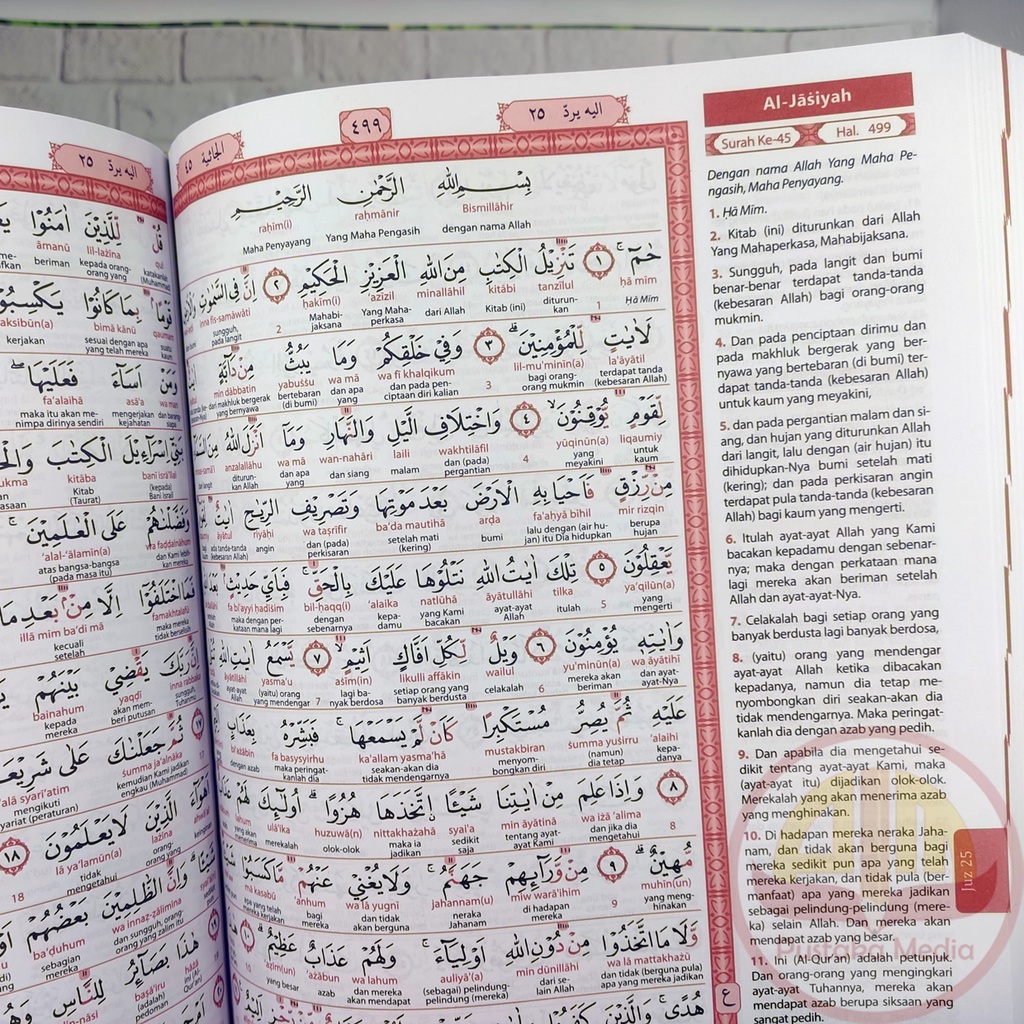 الجاثية ٤٥
٤٩٩
اليه يردّ ٢٥
بِسْمِ اللّٰهِ الرَّحْمٰنِ الرَّحِيْمِ
Bismillāhir raḥmānir raḥīm(i)
dengan nama Allah Yang Maha Pengasih Maha Penyayang
حٰمۤ ۚ ١ تَنْزِيْلُ الْكِتٰبِ مِنَ اللّٰهِ الْعَزِيْزِ الْحَكِيْمِ ٢ اِنَّ فِى السَّمٰوٰتِ
ḥā mīm tanzīlul kitābi minallāhil ‘azīzil ḥakīm(i) inna fis-samāwāti
Ḥā Mīm 1 diturunkan Kitab (ini) dari Allah Yang Mahaperkasa Mahabijaksana 2 sungguh, pada langit
لَاٰيٰتٍ لِّلْمُؤْمِنِيْنَ ۗ ٣ وَفِيْ خَلْقِكُمْ وَمَا يَبُثُّ مِنْ دَاۤبَّةٍ
la'āyātil lil-mu'minīn(a) wa fī khalqikum wa mā yabuṡṡu min dābbatin
terdapat tanda (kebesaran Allah) bagi orang-orang mukmin 3 dan pada penciptaan diri kalian dan apa yang bertebaran (di bumi) dari makhluk bergerak yang bernyawa
لِّقَوْمٍ يُّوْقِنُوْنَۙ ٤ وَاخْتِلَافِ الَّيْلِ وَالنَّهَارِ وَمَآ اَنْزَلَ اللّٰهُ مِنَ
liqaumiy yūqinūn(a) wakhtilāfil laili wan-nahāri wa mā anzalallāhu
untuk kaum yang meyakini 4 dan (pada) pergantian malam dan siang dan apa yang diturunkan Allah
مِنْ رِّزْقٍ فَاَحْيَا بِهِ الْاَرْضَ بَعْدَ مَوْتِهَا وَتَصْرِيْفِ الرِّيٰحِ اٰيٰتٌ
mir rizqin fa'aḥyā bihil arḍa ba‘da mautihā wa taṣrīfir riyāḥi āyātul
berupa hujan lalu dengan (air hujan) itu Dia hidupkan bumi setelah mati (kering) dan (pada) perkisaran angin
يَّعْقِلُوْنَ ٥ تِلْكَ اٰيٰتُ اللّٰهِ نَتْلُوْهَا عَلَيْكَ بِالْحَقِّۚ فَبِاَيِّ حَدِيْثٍۢ
ya‘qilūn(a) tilka āyātullāhi natlūhā ‘alaika bil-ḥaqq(i) fa bi'ayyi ḥadīṡim
yang mengerti 5 itulah ayat-ayat Allah yang Kami bacakan kepadamu dengan sebenarnya maka dengan perkataan mana lagi
وَاٰيٰتِهٖ يُؤْمِنُوْنَ ٦ وَيْلٌ لِّكُلِّ اَفَّاكٍ اَثِيْمٍۙ ٧ يَّسْمَعُ اٰيٰتِ اللّٰهِ
wa āyātihī yu'minūn(a) wailul likulli affākin aṡīm(in) yasma‘u āyātillāhi
dan ayat-ayat-Nya mereka akan beriman 6 celakalah setiap orang yang banyak berdusta lagi banyak berdosa 7 (yaitu) orang yang mendengar ayat-ayat Allah
عَلَيْهِ ثُمَّ يُصِرُّ مُسْتَكْبِرًا كَاَنْ لَّمْ يَسْمَعْهَاۚ فَبَشِّرْهُ بِعَذَابٍ
‘alaihi ṡumma yuṣirru mustakbiran ka'allam yasma‘hā fa basysyirhu bi‘ażābin
kepadanya (namun) dia tetap menyombongkan diri seakan-akan dia tidak mendengarnya maka peringatkanlah dia dengan azab
٨ وَاِذَا عَلِمَ مِنْ اٰيٰتِنَا شَيْـًٔا اتَّخَذَهَا هُزُوًاۗ اُولٰۤىِٕكَ لَهُمْ
wa iżā ‘alima min āyātinā syai'a nittakhażahā huzuwā(n) ulā'ika lahum
8 dan jika dia mengetahui tentang ayat-ayat Kami sedikit saja maka ia jadikan olok-olok merekalah
مُّهِيْنٌۗ ٩ مِنْ وَّرَاۤىِٕهِمْ جَهَنَّمُۚ وَلَا يُغْنِيْ عَنْهُمْ مَّا كَسَبُوْا
muhīn(un) miw warā'ihim jahannam(u) wa lā yugnī ‘anhum mā kasabū
yang menghinakan 9 di hadapan mereka neraka Jahanam dan tidak akan berguna bagi mereka apa yang telah mereka kerjakan
وَّلَا مَا اتَّخَذُوْا مِنْ دُوْنِ اللّٰهِ اَوْلِيَاۤءَۚ وَلَهُمْ عَذَابٌ عَظِيْمٌۗ ١٠
wa lā mattakhażū min dūnillāhi auliyā'(a) wa lahum ‘ażābun ‘aẓīm(un)
dan tidak (berguna pula) apa yang mereka jadikan dari selain Allah (sebagai) pelindung-pelindung (mereka) dan mereka akan mendapat azab yang besar 10
هُدًىۚ وَالَّذِيْنَ كَفَرُوْا
ع
Al-Jāṡiyah
Surah Ke-45
Hal. 499
Dengan nama Allah Yang Maha Pe-
ngasih, Maha Penyayang.
1. Ḥā Mīm.
2. Kitab (ini) diturunkan dari Allah
Yang Mahaperkasa, Mahabijaksana.
3. Sungguh, pada langit dan bumi
benar-benar terdapat tanda-tanda
(kebesaran Allah) bagi orang-orang
mukmin.
4. Dan pada penciptaan dirimu dan
pada makhluk bergerak yang ber-
nyawa yang bertebaran (di bumi) ter-
dapat tanda-tanda (kebesaran Allah)
untuk kaum yang meyakini,
5. dan pada pergantian malam dan si-
ang, dan hujan yang diturunkan Allah
dari langit, lalu dengan (air hujan) itu
dihidupkan-Nya bumi setelah mati
(kering); dan pada perkisaran angin
terdapat pula tanda-tanda (kebesaran
Allah) bagi kaum yang mengerti.
6. Itulah ayat-ayat Allah yang Kami
bacakan kepadamu dengan sebenar-
nya; maka dengan perkataan mana
lagi mereka akan beriman setelah
Allah dan ayat-ayat-Nya.
7. Celakalah bagi setiap orang yang
banyak berdusta lagi banyak berdosa,
8. (yaitu) orang yang mendengar
ayat-ayat Allah ketika dibacakan
kepadanya, namun dia tetap me-
nyombongkan diri seakan-akan dia
tidak mendengarnya. Maka peringat-
kanlah dia dengan azab yang pedih.
9. Dan apabila dia mengetahui se-
dikit tentang ayat-ayat Kami, maka
(ayat-ayat itu) dijadikan olok-olok.
Merekalah yang akan menerima azab
yang menghinakan.
10. Di hadapan mereka neraka Jaha-
nam, dan tidak akan berguna bagi
mereka sedikit pun apa yang telah
mereka kerjakan, dan tidak pula (ber-
manfaat) apa yang mereka jadikan
sebagai pelindung-pelindung (mere-
ka) selain Allah. Dan mereka akan
mendapat azab yang besar.
11. Ini (Al-Qur'an) adalah petunjuk.
Dan orang-orang yang mengingkari
ayat-ayat Tuhannya, mereka akan
mendapat azab berupa siksaan yang
sangat pedih.
Juz 25
Pustaka Media
اليه يردّ ٢٥
قُلْ لِّلَّذِيْنَ اٰمَنُوْا
qul lil-lażīna āmanū
katakanlah (Muhammad) kepada orang-orang yang beriman
قَوْمًاۢ بِمَا كَانُوْا يَكْسِبُوْنَ
qaumam bimā kānū yaksibūn(a)
suatu kaum sesuai dengan apa yang telah mereka kerjakan
وَمَنْ اَسَاۤءَ فَعَلَيْهَا ۖ
wa man asā'a fa‘alaihā
dan barang siapa mengerjakan kejahatan maka itu akan menimpa dirinya sendiri
بَنِيْٓ اِسْرَاۤءِيْلَ الْكِتٰبَ
banī isrā'īlal kitāba
(kepada) Bani Israil Kitab (Taurat)
وَفَضَّلْنٰهُمْ عَلَى الْعٰلَمِيْنَ ۚ
wa faḍḍalnāhum ‘alal-‘ālamīn(a)
dan Kami lebihkan mereka atas bangsa-bangsa (pada masa itu)
فَمَا اخْتَلَفُوْٓا اِلَّا مِنْۢ بَعْدِ مَا
famakhtalafū illā mim ba‘di mā
maka mereka tidak berselisih kecuali setelah
اِنَّ رَبَّكَ يَقْضِيْ بَيْنَهُمْ
inna rabbaka yaqḍī bainahum
sungguh, Tuhanmu akan memberi putusan kepada mereka
١٧ ثُمَّ جَعَلْنٰكَ عَلٰى شَرِيْعَةٍ
ṡumma ja‘alnāka ‘alā syarī‘atim
17 kemudian Kami jadikan engkau (Muhammad) mengikuti syariat (peraturan)
اَهْوَاۤءَ الَّذِيْنَ لَا يَعْلَمُوْنَ ١٨
lażīna lā ya‘lamūn(a)
orang-orang yang tidak mengetahui 18
شَيْـًٔاۗ وَاِنَّ الظّٰلِمِيْنَ بَعْضُهُمْ
wa innaẓ-ẓālimīna ba‘ḍuhum
dan sungguh, orang-orang yang zalim itu sebagian mereka
هٰذَا بَصَاۤىِٕرُ لِلنَّاسِ
hāżā baṣā'iru lin-nāsi
ini (Al-Qur'an) (adalah) pedoman